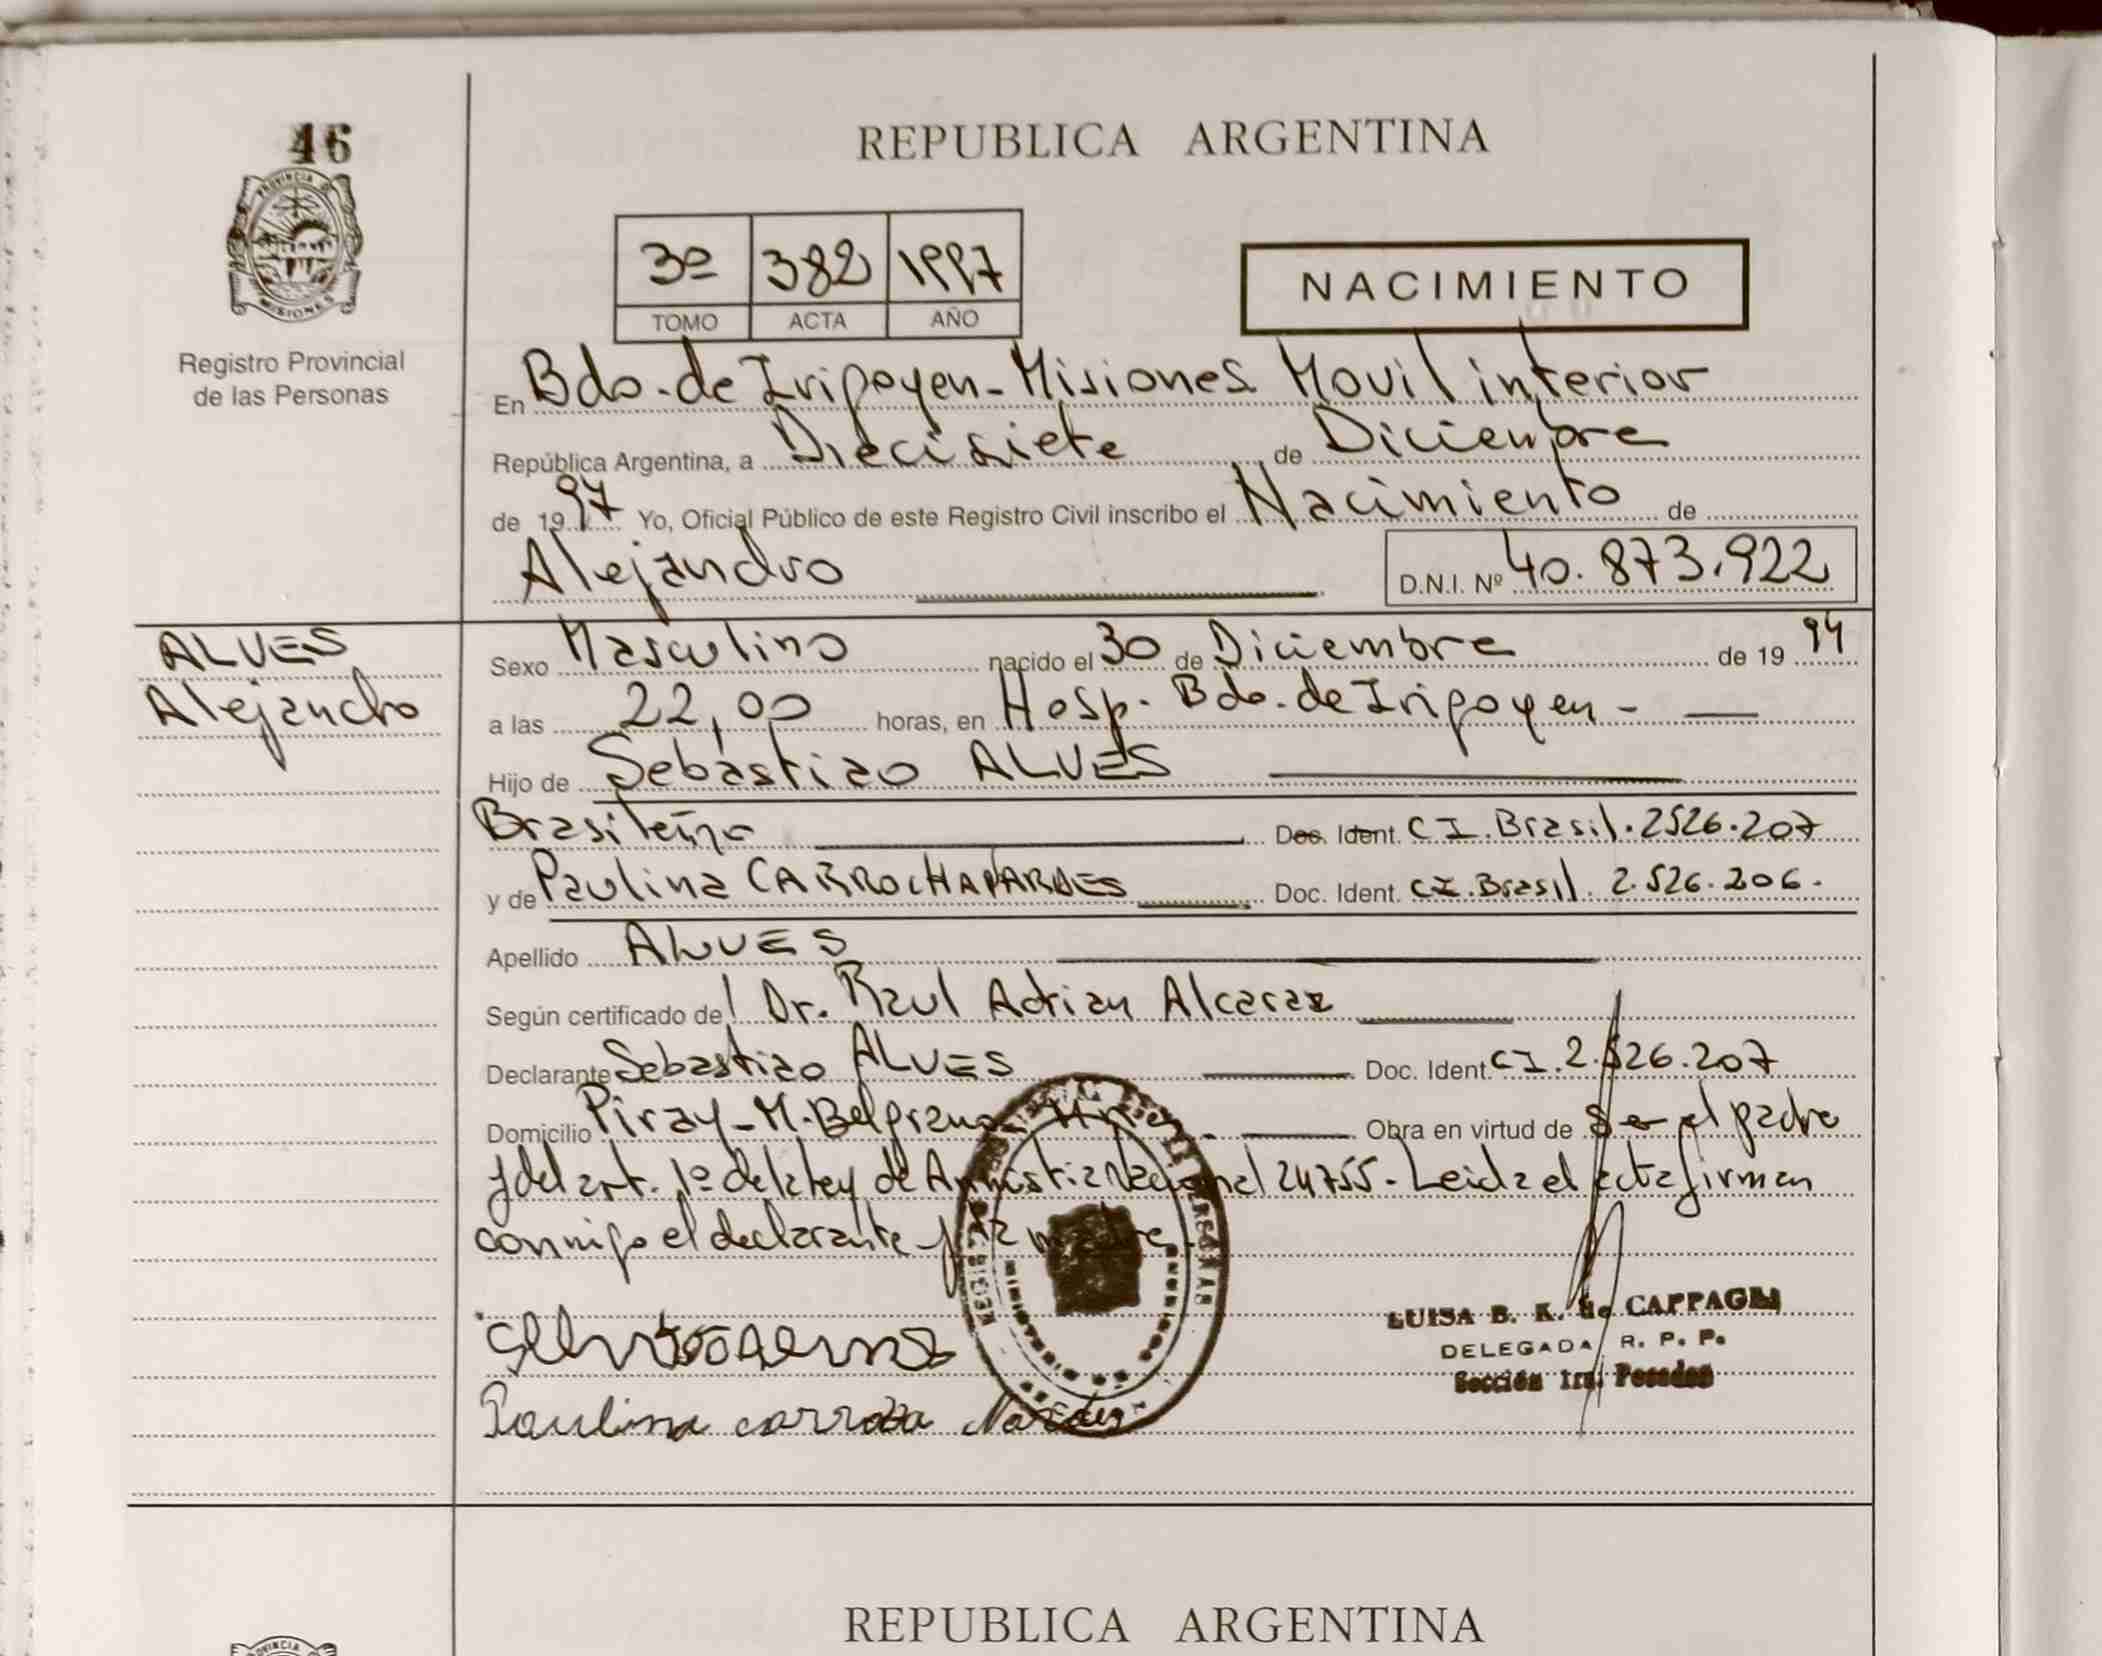 46
PROVINCIA D
MISIONES
Registro Provincial
de las Personas
REPUBLICA ARGENTINA
3º 382 1997
TOMO ACTA AÑO
NACIMIENTO
En Bdo. de Irigoyen - Misiones Movil interior
República Argentina, a Diecisiete de Diciembre
de 1997 Yo, Oficial Público de este Registro Civil inscribo el Nacimiento de
Alejandro D.N.I. Nº 40.873.922
ALVES
Alejandro
Sexo Masculino nacido el 30 de Diciembre de 1994
a las 22,00 horas, en Hosp. Bdo. de Irigoyen -
Hijo de Sebastiao ALVES
Brasileño Doc. Ident. CI. Brasil. 2526.207
y de Paulina Doc. Ident. CI. Brasil. 2.526.206.
Apellido ALVES
Según certificado del Dr. Raul Adrian Alcaraz
Declarante Sebastiao ALVES Doc. Ident. CI. 2.526.207
Domicilio Piray - M. Belgrano Obra en virtud de Ser el padre
y del art. 1º de la Ley de Amnistia Nacional 24755. Leida el acta firman
conmigo el declarante y la madre
LUISA B. K. de
DELEGADA R. P. P.
Sección 1ra. Posadas
Paulina
REPUBLICA ARGENTINA
PROVINCIA